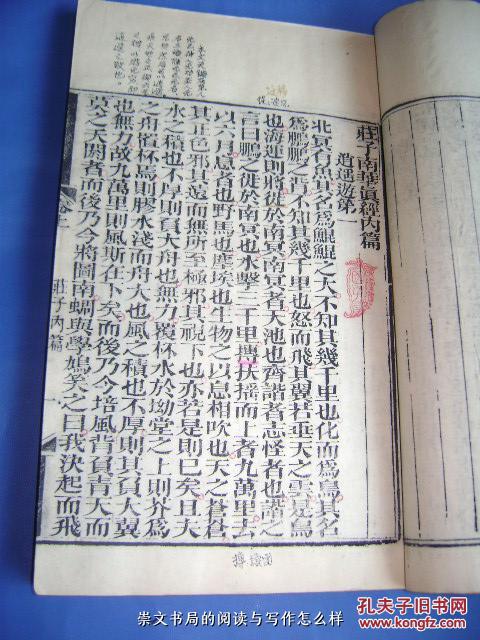 莊子南華眞經內篇
逍遥遊第一
北冥有魚其名爲鯤鯤之大不知其幾千里也化而爲鳥其名
爲鵬鵬之背不知其幾千里也怒而飛其翼若垂天之雲是鳥
也海運則將徙於南冥南冥者天池也齊諧者志怪者也諧之
言曰鵬之徙於南冥也水擊三千里摶扶搖而上者九萬里去
以六月息者也野馬也塵埃也生物之以息相吹也天之蒼蒼
其正色邪其遠而無所至極邪其視下也亦若是則已矣且夫
水之積也不厚則負大舟也無力覆杯水於坳堂之上則芥爲
之舟置杯焉則膠水淺而舟大也風之積也不厚則其負大翼
也無力故九萬里則風斯在下矣而後乃今培風背負青天而
莫之夭閼者而後乃今將圖南蜩與學鳩笑之曰我決起而飛
莊子內篇
一
崇文书局的阅读与写作怎么样
孔夫子旧书网